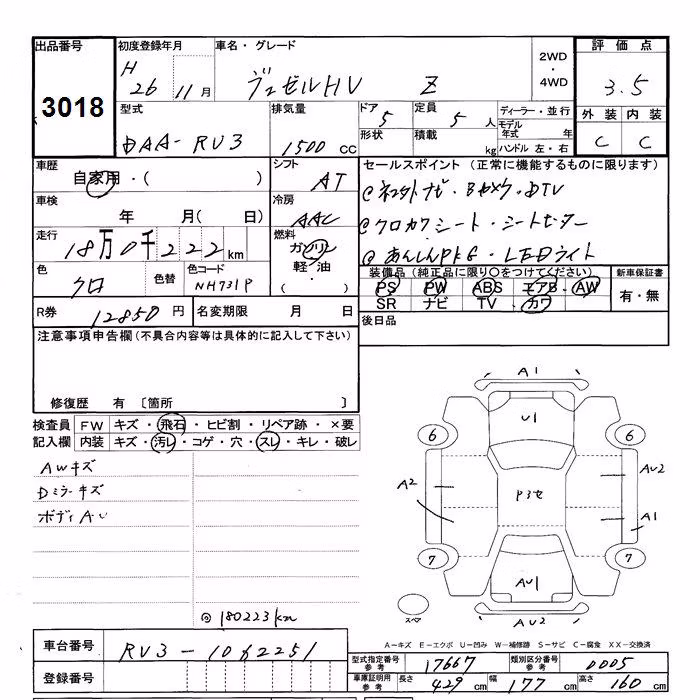 出品番号
3018
初度登録年月
H 26 11月
車名・グレード
ヴェゼルHV Z
2WD
・
4WD
評価点
3.5
外装 内装
C C
型式
DAA-RV3
排気量
1500 CC
ドア
5
形状
定員
5 人
積載
kg
ディーラー・並行
モデル年式 年
ハンドル 左・右
車歴
自家用・( )
シフト
AT
車検
年 月( 日)
冷房
AAC
走行
18万0千222km
燃料
ガソリン
軽・油
( )
色
クロ
色替
色コード
NH731P
R券
12850 円
名変期限 月 日
セールスポイント (正常に機能するものに限ります)
@ ネオトナビ・Bカメラ・DTV
@ クロカワシート・シートヒーター
@ あんしんPKG・LEDライト
装備品(純正品に限り○をつけてください)
PS PW ABS エアB AW
SR ナビ TV カワ
新車保証書
有・無
後日品
注意事項申告欄(不具合内容等は具体的に記入して下さい)
修復歴 有 〔箇所 〕
検査員記入欄
FW キズ・飛石・ヒビ割・リペア跡・×要
内装 キズ・汚レ・コゲ・穴・スレ・キレ・破レ
AWキズ
Dミラーキズ
ボディAU
@ 180223km
A1
U1
6 6
A2
AU2
P3セ
A1
7 7
AU1
スペア
AU2
A-キズ E-エクボ U-凹み W-補修跡 S-サビ C-腐食 XX-交換済
車台番号
RV3-1062251
登録番号
型式指定番号 参考
17667
類別区分番号 参考
0005
車庫証明用 参考
長さ 429 cm
幅 177 cm
高さ 160 cm